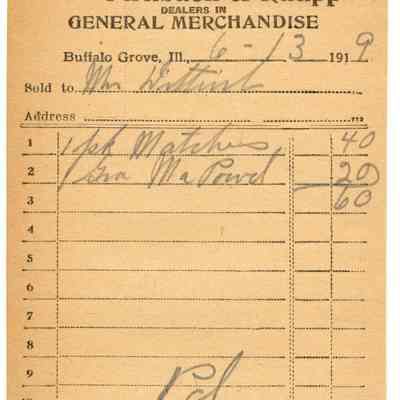 & Knapp
DEALERS IN
GENERAL MERCHANDISE
Buffalo Grove, Ill., 6-13 1919
Sold to Mr
Address
1 1 pk Matches 40
2 1 Ma Powd 20
3 60
4
5
6
7
8
9
Pd